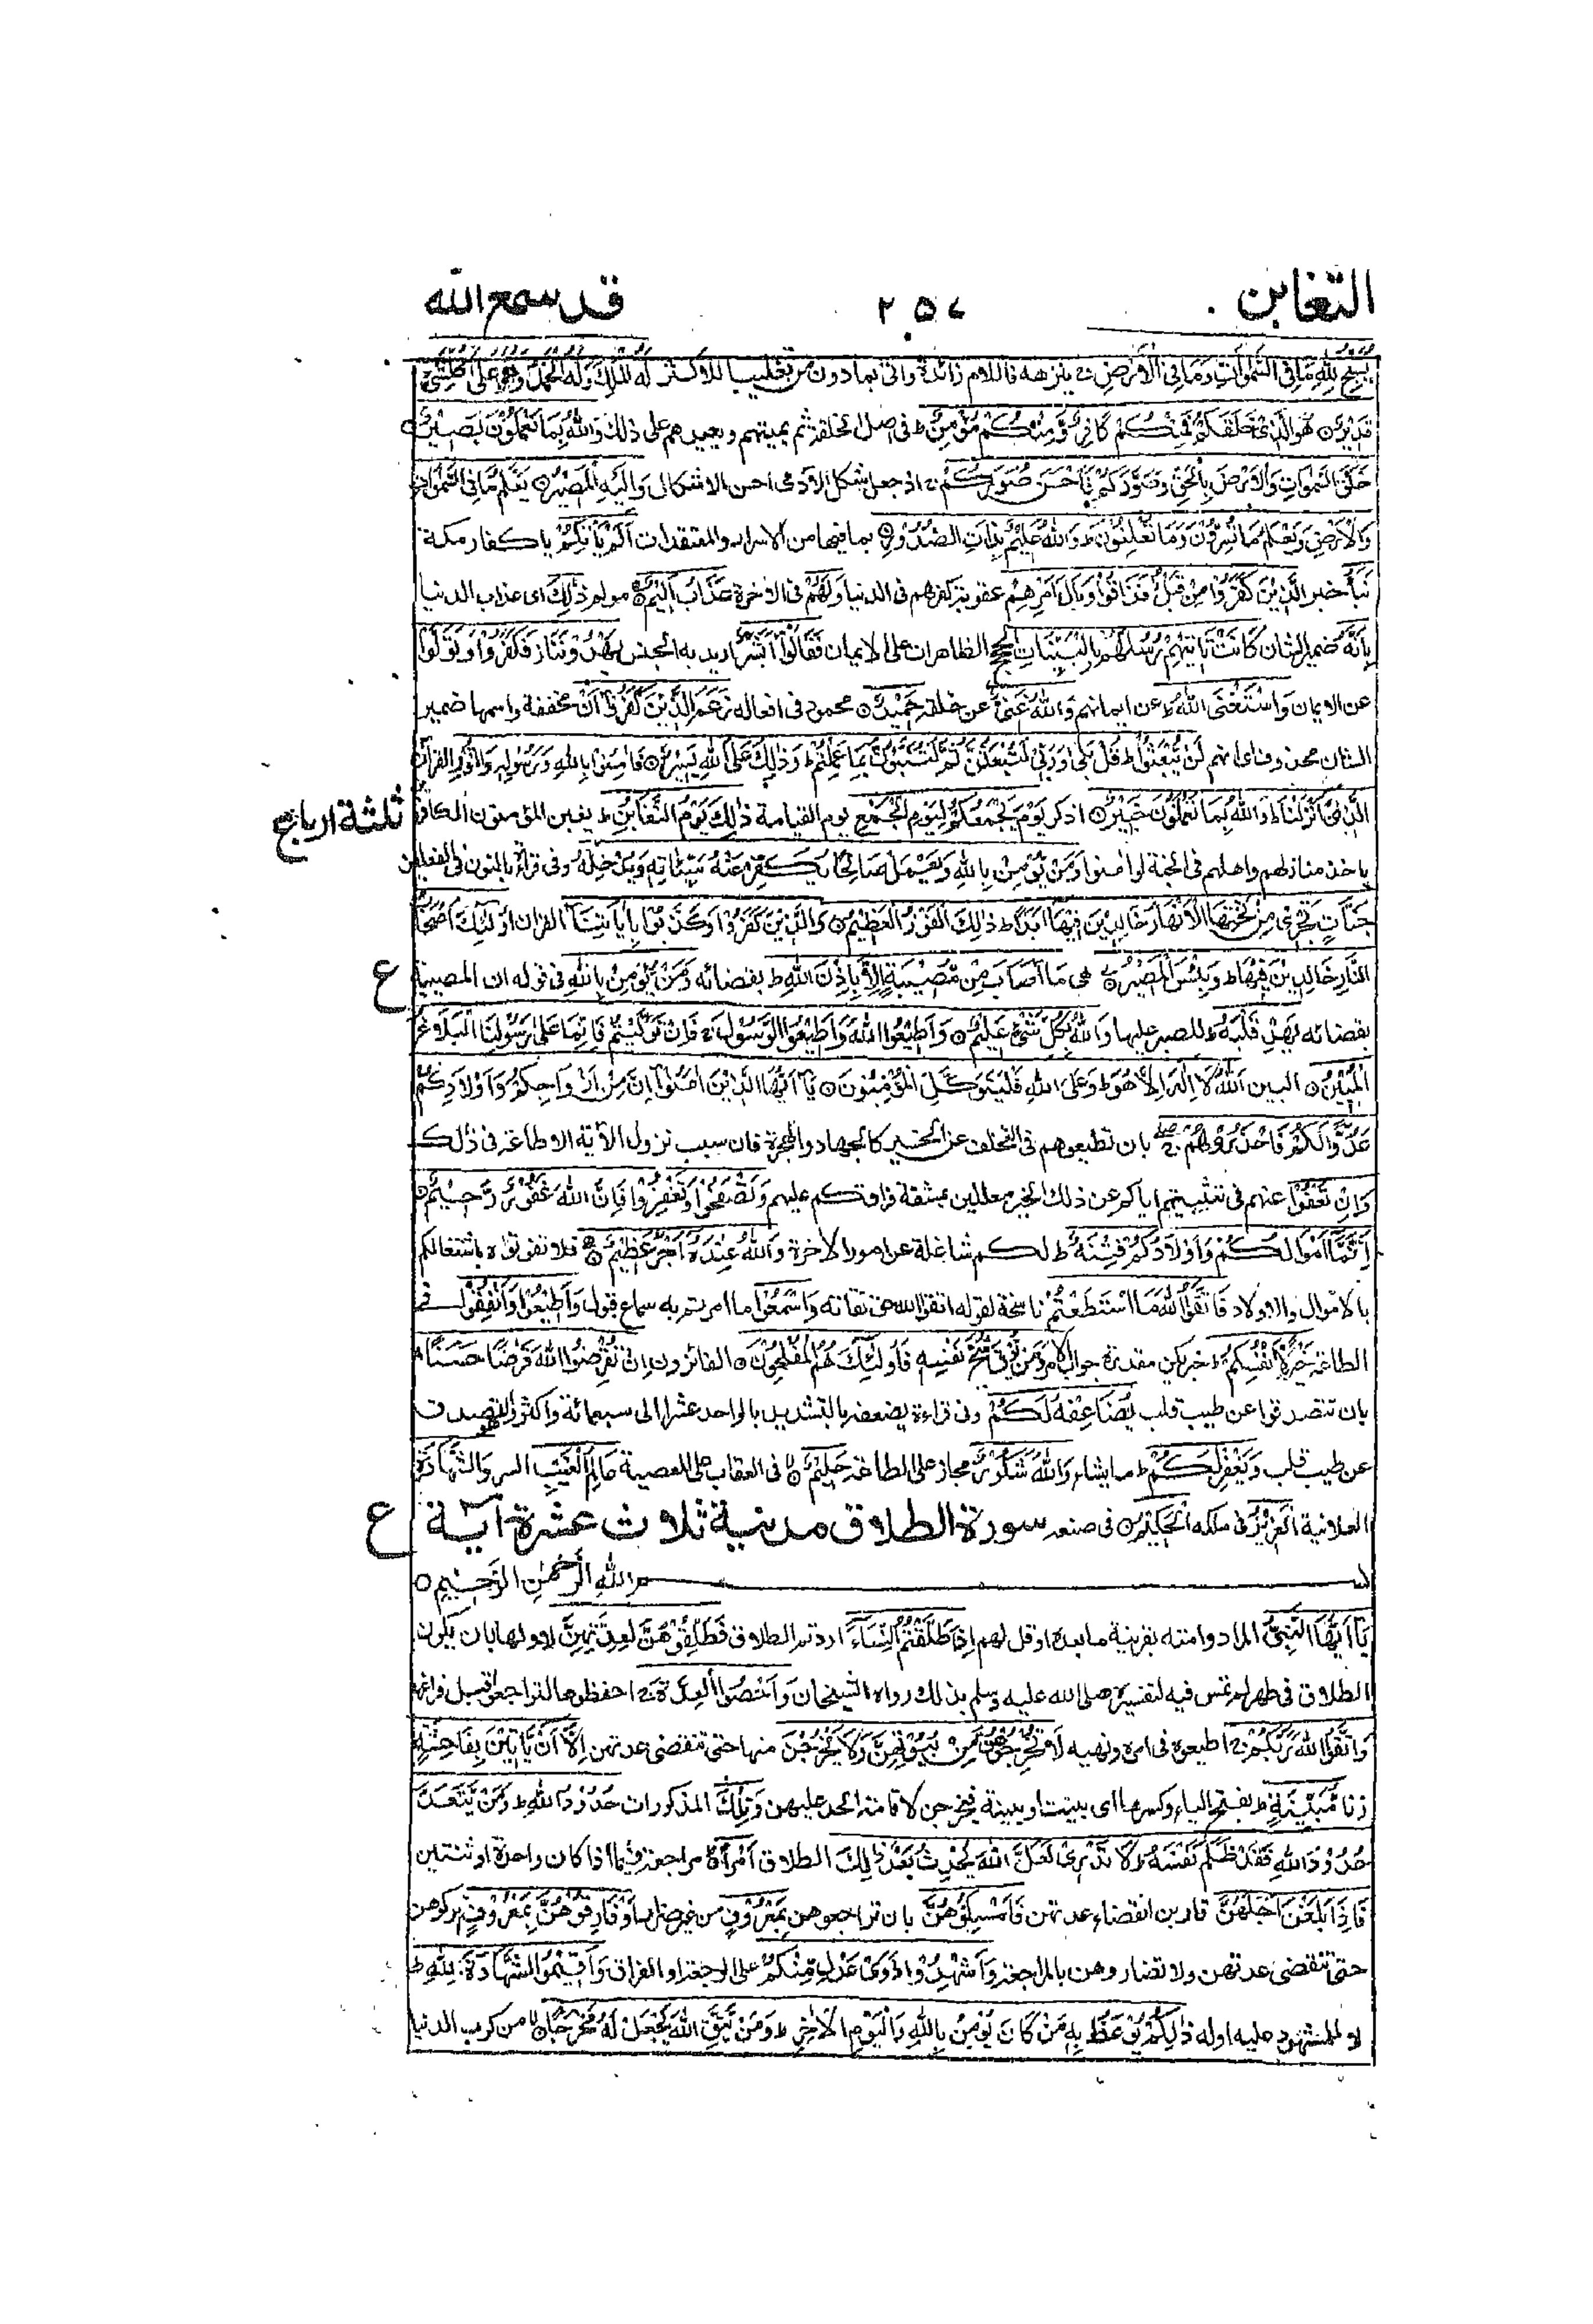 التغابن ٢٥٧ قد سمع الله
يُسَبِّحُ لِلّٰهِ مَا فِى السَّمٰوَاتِ وَمَا فِى الْاَرْضِ ج ينزهه فاللام زائدة واتى بما دون من تغليبا للاكثر لَهُ الْمُلْكُ وَلَهُ الْحَمْدُ وَهُوَ عَلٰى كُلِّ شَىْءٍ
قَدِيْرٌ ○ هُوَ الَّذِىْ خَلَقَكُمْ فَمِنْكُمْ كَافِرٌ وَّمِنْكُمْ مُّؤْمِنٌ ط فى اصل الخلقة ثم يميتهم ويعيدهم على ذلك وَاللّٰهُ بِمَا تَعْمَلُوْنَ بَصِيْرٌ ○
خَلَقَ السَّمٰوَاتِ وَالْاَرْضَ بِالْحَقِّ وَصَوَّرَكُمْ فَاَحْسَنَ صُوَرَكُمْ ج اذ جعل شكل الادمى احسن الاشكال وَاِلَيْهِ الْمَصِيْرُ ○ يَعْلَمُ مَا فِى السَّمٰوَاتِ
وَالْاَرْضِ وَيَعْلَمُ مَا تُسِرُّوْنَ وَمَا تُعْلِنُوْنَ ط وَاللّٰهُ عَلِيْمٌ بِذَاتِ الصُّدُوْرِ ○ بما فيها من الاسرار والمعتقدات اَلَمْ يَاْتِكُمْ يا كفار مكة
نَبَأُ خبر الَّذِيْنَ كَفَرُوْا مِنْ قَبْلُ فَذَاقُوْا وَبَالَ اَمْرِهِمْ عقوبة كفرهم فى الدنيا وَلَهُمْ فى الاخرة عَذَابٌ اَلِيْمٌ ○ مولم ذٰلِكَ اى عذاب الدنيا
بِاَنَّهٗ ضمير الشان كَانَتْ تَاْتِيْهِمْ رُسُلُهُمْ بِالْبَيِّنَاتِ الحجج الظاهرات على الايمان فَقَالُوْا اَبَشَرٌ اريد به الجنس يَهْدُوْنَنَا ز فَكَفَرُوْا وَتَوَلَّوْا
عن الايمان وَاسْتَغْنَى اللّٰهُ ط عن ايمانهم وَاللّٰهُ غَنِىٌّ عن خلقه حَمِيْدٌ ○ محمود فى افعاله زَعَمَ الَّذِيْنَ كَفَرُوْا اَنْ مخففة واسمها ضمير
الشان محذوف اى انهم لَنْ يُّبْعَثُوْا ط قُلْ بَلٰى وَرَبِّىْ لَتُبْعَثُنَّ ثُمَّ لَتُنَبَّؤُنَّ بِمَا عَمِلْتُمْ ط وَذٰلِكَ عَلَى اللّٰهِ يَسِيْرٌ ○ فَاٰمِنُوْا بِاللّٰهِ وَرَسُوْلِهٖ وَالنُّوْرِ القرآن
الَّذِىْ اَنْزَلْنَا ط وَاللّٰهُ بِمَا تَعْمَلُوْنَ خَبِيْرٌ ○ اذكر يَوْمَ يَجْمَعُكُمْ لِيَوْمِ الْجَمْعِ يوم القيامة ذٰلِكَ يَوْمُ التَّغَابُنِ ط يغبن المؤمنون الكافرين
ثلثة ارباع
باخذ منازلهم واهلهم فى الجنة لو امنوا وَمَنْ يُّؤْمِنْ بِاللّٰهِ وَيَعْمَلْ صَالِحًا يُّكَفِّرْ عَنْهُ سَيِّئَاتِهٖ وَيُدْخِلْهُ وفى قراءة بالنون فى الفعلين
جَنَّاتٍ تَجْرِىْ مِنْ تَحْتِهَا الْاَنْهَارُ خَالِدِيْنَ فِيْهَا اَبَدًا ط ذٰلِكَ الْفَوْزُ الْعَظِيْمُ ○ وَالَّذِيْنَ كَفَرُوْا وَكَذَّبُوْا بِاٰيَاتِنَا القران اُولٰئِكَ اَصْحَابُ
النَّارِ خَالِدِيْنَ فِيْهَا ط وَبِئْسَ الْمَصِيْرُ ○ هى مَا اَصَابَ مِنْ مُّصِيْبَةٍ اِلَّا بِاِذْنِ اللّٰهِ ط بقضائه وَمَنْ يُّؤْمِنْ بِاللّٰهِ فى قوله ان المصيبة
ع
بقضائه يَهْدِ قَلْبَهٗ ط للصبر عليها وَاللّٰهُ بِكُلِّ شَىْءٍ عَلِيْمٌ ○ وَاَطِيْعُوا اللّٰهَ وَاَطِيْعُوا الرَّسُوْلَ ج فَاِنْ تَوَلَّيْتُمْ فَاِنَّمَا عَلٰى رَسُوْلِنَا الْبَلَاغُ
الْمُبِيْنُ ○ البين اَللّٰهُ لَا اِلٰهَ اِلَّا هُوَ ط وَعَلَى اللّٰهِ فَلْيَتَوَكَّلِ الْمُؤْمِنُوْنَ ○ يَا اَيُّهَا الَّذِيْنَ اٰمَنُوْا اِنَّ مِنْ اَزْوَاجِكُمْ وَاَوْلَادِكُمْ
عَدُوًّا لَّكُمْ فَاحْذَرُوْهُمْ ج ان تطيعوهم فى التخلف عن الخير كالجهاد والهجرة فان سبب نزول الآية الاطاعة فى ذلك
وَاِنْ تَعْفُوْا عنهم فى تثبيتهم اياكم عن ذلك الخير معللين بمشقة فراقكم عليهم وَتَصْفَحُوْا وَتَغْفِرُوْا فَاِنَّ اللّٰهَ غَفُوْرٌ رَّحِيْمٌ ○
اِنَّمَا اَمْوَالُكُمْ وَاَوْلَادُكُمْ فِتْنَةٌ ط لكم شاغلة عن امور الاخرة وَاللّٰهُ عِنْدَهٗ اَجْرٌ عَظِيْمٌ ○ فلا تفوتوه باشتغالكم
بالاموال والاولاد فَاتَّقُوا اللّٰهَ مَا اسْتَطَعْتُمْ ناسخة لقوله اتقوا الله حق تقاته وَاسْمَعُوْا ما امرتم به سماع قبول وَاَطِيْعُوْا وَاَنْفِقُوْا فى
الطاعة خَيْرًا لِّاَنْفُسِكُمْ ط خبر يكن مقدرة جواب الامر وَمَنْ يُّوْقَ شُحَّ نَفْسِهٖ فَاُولٰئِكَ هُمُ الْمُفْلِحُوْنَ ○ الفائزون اِنْ تُقْرِضُوا اللّٰهَ قَرْضًا حَسَنًا
بان تتصدقوا عن طيب قلب يُضَاعِفْهُ لَكُمْ وفى قراءة يضعفه بالتشديد بالواحد عشرا الى سبعمائة واكثر وهو التصدق
عن طيب قلب وَيَغْفِرْ لَكُمْ ط ما يشاء وَاللّٰهُ شَكُوْرٌ مجاز على الطاعة حَلِيْمٌ ○ فى العقاب على المعصية عَالِمُ الْغَيْبِ السر وَالشَّهَادَةِ
العلانية الْعَزِيْزُ فى ملكه الْحَكِيْمُ ○ فى صنعه سورة الطلاق مدنية ثلاث عشرة آية
ع
بسم اللهِ الرَّحْمٰنِ الرَّحِيْمِ ○
يَا اَيُّهَا النَّبِىُّ المراد وامته بقرينة ما بعده او قل لهم اِذَا طَلَّقْتُمُ النِّسَاءَ اردتم الطلاق فَطَلِّقُوْهُنَّ لِعِدَّتِهِنَّ لاولها بان يكون
الطلاق فى طهر لم تمس فيه لتفسيره صلى الله عليه وسلم بذلك رواه الشيخان وَاَحْصُوا الْعِدَّةَ ج احفظوها لتراجعوا قبل فراغها
وَاتَّقُوا اللّٰهَ رَبَّكُمْ ج اطيعوه فى امره ونهيه لَا تُخْرِجُوْهُنَّ مِنْ بُيُوْتِهِنَّ وَلَا يَخْرُجْنَ منها حتى تنقضى عدتهن اِلَّا اَنْ يَّاْتِيْنَ بِفَاحِشَةٍ
زنا مُّبَيِّنَةٍ ط بفتح الياء وكسرها اى بينت او بينة فيخرجن لاقامة الحد عليهن وَتِلْكَ المذكورات حُدُوْدُ اللّٰهِ ط وَمَنْ يَّتَعَدَّ
حُدُوْدَ اللّٰهِ فَقَدْ ظَلَمَ نَفْسَهٗ ط لَا تَدْرِىْ لَعَلَّ اللّٰهَ يُحْدِثُ بَعْدَ ذٰلِكَ الطلاق اَمْرًا ○ مراجعة فيما اذا كان واحدة او ثنتين
فَاِذَا بَلَغْنَ اَجَلَهُنَّ قاربن انقضاء عدتهن فَاَمْسِكُوْهُنَّ بان تراجعوهن بِمَعْرُوْفٍ من غير ضرار اَوْ فَارِقُوْهُنَّ بِمَعْرُوْفٍ اتركوهن
حتى تنقضى عدتهن ولا تضاروهن بالمراجعة وَاَشْهِدُوْا ذَوَىْ عَدْلٍ مِّنْكُمْ على الرجعة او الفراق وَاَقِيْمُوا الشَّهَادَةَ لِلّٰهِ ط
لا للمشهود عليه او له ذٰلِكُمْ يُوْعَظُ بِهٖ مَنْ كَانَ يُؤْمِنُ بِاللّٰهِ وَالْيَوْمِ الْاٰخِرِ ط وَمَنْ يَّتَّقِ اللّٰهَ يَجْعَلْ لَّهٗ مَخْرَجًا ○ من كرب الدنيا